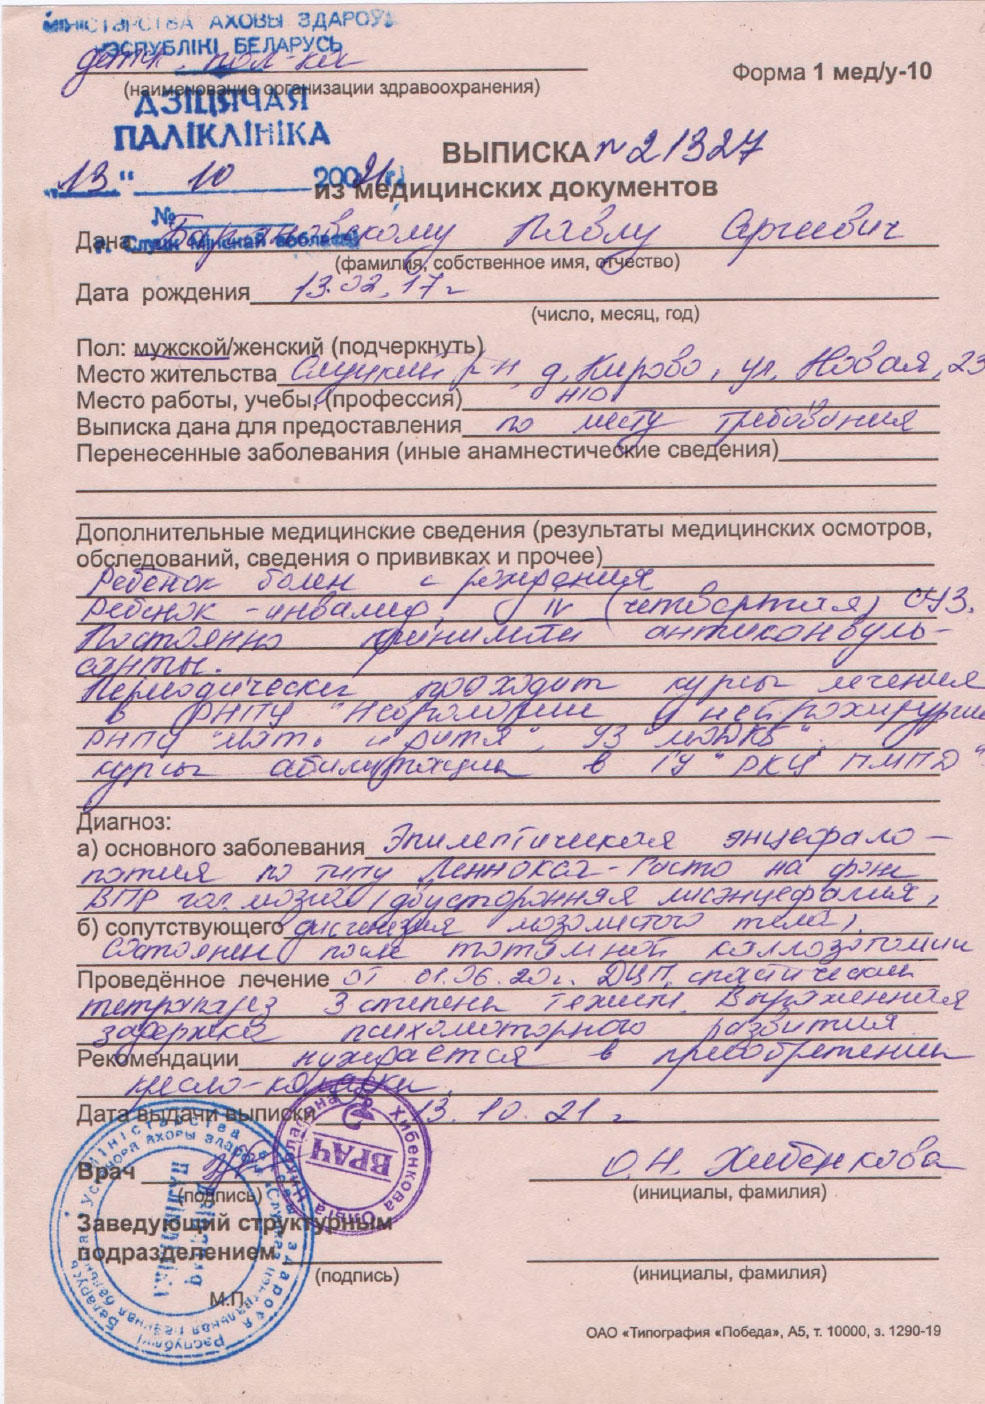 МІНІСТЭРСТВА АХОВЫ ЗДАРОЎЯ
РЭСПУБЛІКІ БЕЛАРУСЬ
детск. пол-ка
(наименование организации здравоохранения)
Форма 1 мед/у-10
ДЗІЦЯЧАЯ
ПАЛІКЛІНІКА
ВЫПИСКА № 21327
"13" 10 2021 г.
из медицинских документов
№
г. Слуцк Мінскай вобласці
Дана Павлу Сергеевич
(фамилия, собственное имя, отчество)
Дата рождения 13.02.17 г
(число, месяц, год)
Пол: мужской/женский (подчеркнуть)
Место жительства Слуцкий р-н, д. Кирово, ул. Новая, 23
Место работы, учебы, (профессия) н/о
Выписка дана для предоставления по месту требования
Перенесенные заболевания (иные анамнестические сведения)
Дополнительные медицинские сведения (результаты медицинских осмотров,
обследований, сведения о прививках и прочее)
Ребенок болен с рождения
Ребенок-инвалид, IV (четвертая) СУЗ.
Постоянно принимает антиконвуль-
санты.
Периодически проходит курсы лечения
в РНПЦ "Неврологии и нейрохирургии
РНПЦ "Мать и дитя", УЗ "МОДКБ".
курсы абилитации в ГУ "РКЦ ПМПД"
Диагноз:
а) основного заболевания Эпилептическая энцефало-
патия по типу Леннокса-Гасто на фоне
ВПР гол. мозга (двусторонняя лисэнцефалия,
б) сопутствующего дисгенезия мозолистого тела).
Состояние после тотальной каллозотомии
Проведённое лечение от 01.06.20г. ДЦП, спастический
тетрапарез 3 степени тяжести. Выраженная
задержка психомоторного развития
Рекомендации нуждается в приобретении
кресло-коляски.
Дата выдачи выписки 13.10.21 г
Врач
О.Н. Хибенкова
(подпись)
(инициалы, фамилия)
ВРАЧ
Хибенкова Ольга
Заведующий структурным
подразделением
(подпись)
(инициалы, фамилия)
М.П.
ДЗІЦЯЧАЯ
ПАЛІКЛІНІКА
ОАО «Типография «Победа», А5, т. 10000, з. 1290-19